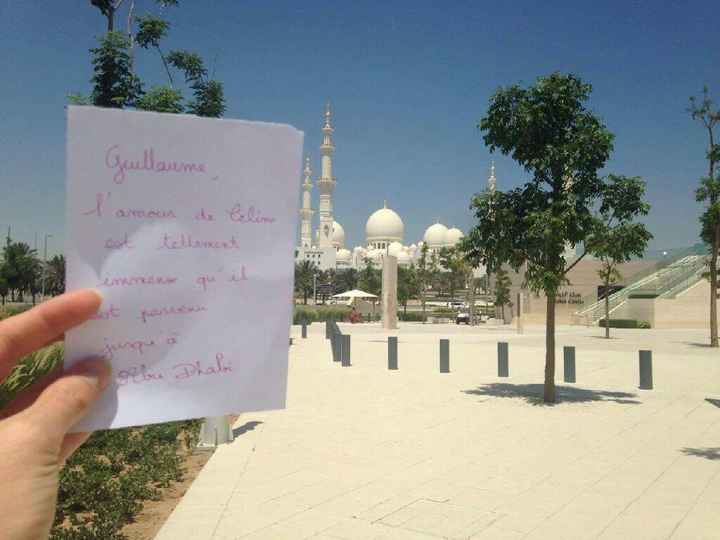 Guillaume,
l'amour de Céline
est tellement
immense qu'il
est parvenu
jusqu'à
Abu Dhabi